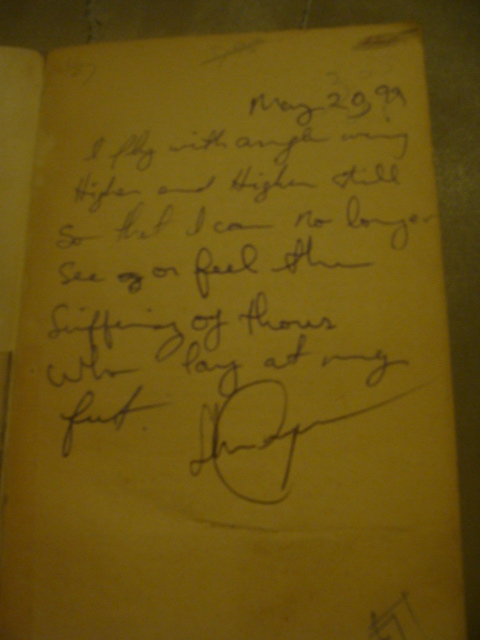 May 20, 99
I fly with angle wing
Higher and Higher still
So that I can no longer
See or feel the
Suffering of thous
Who lay at my
feet.